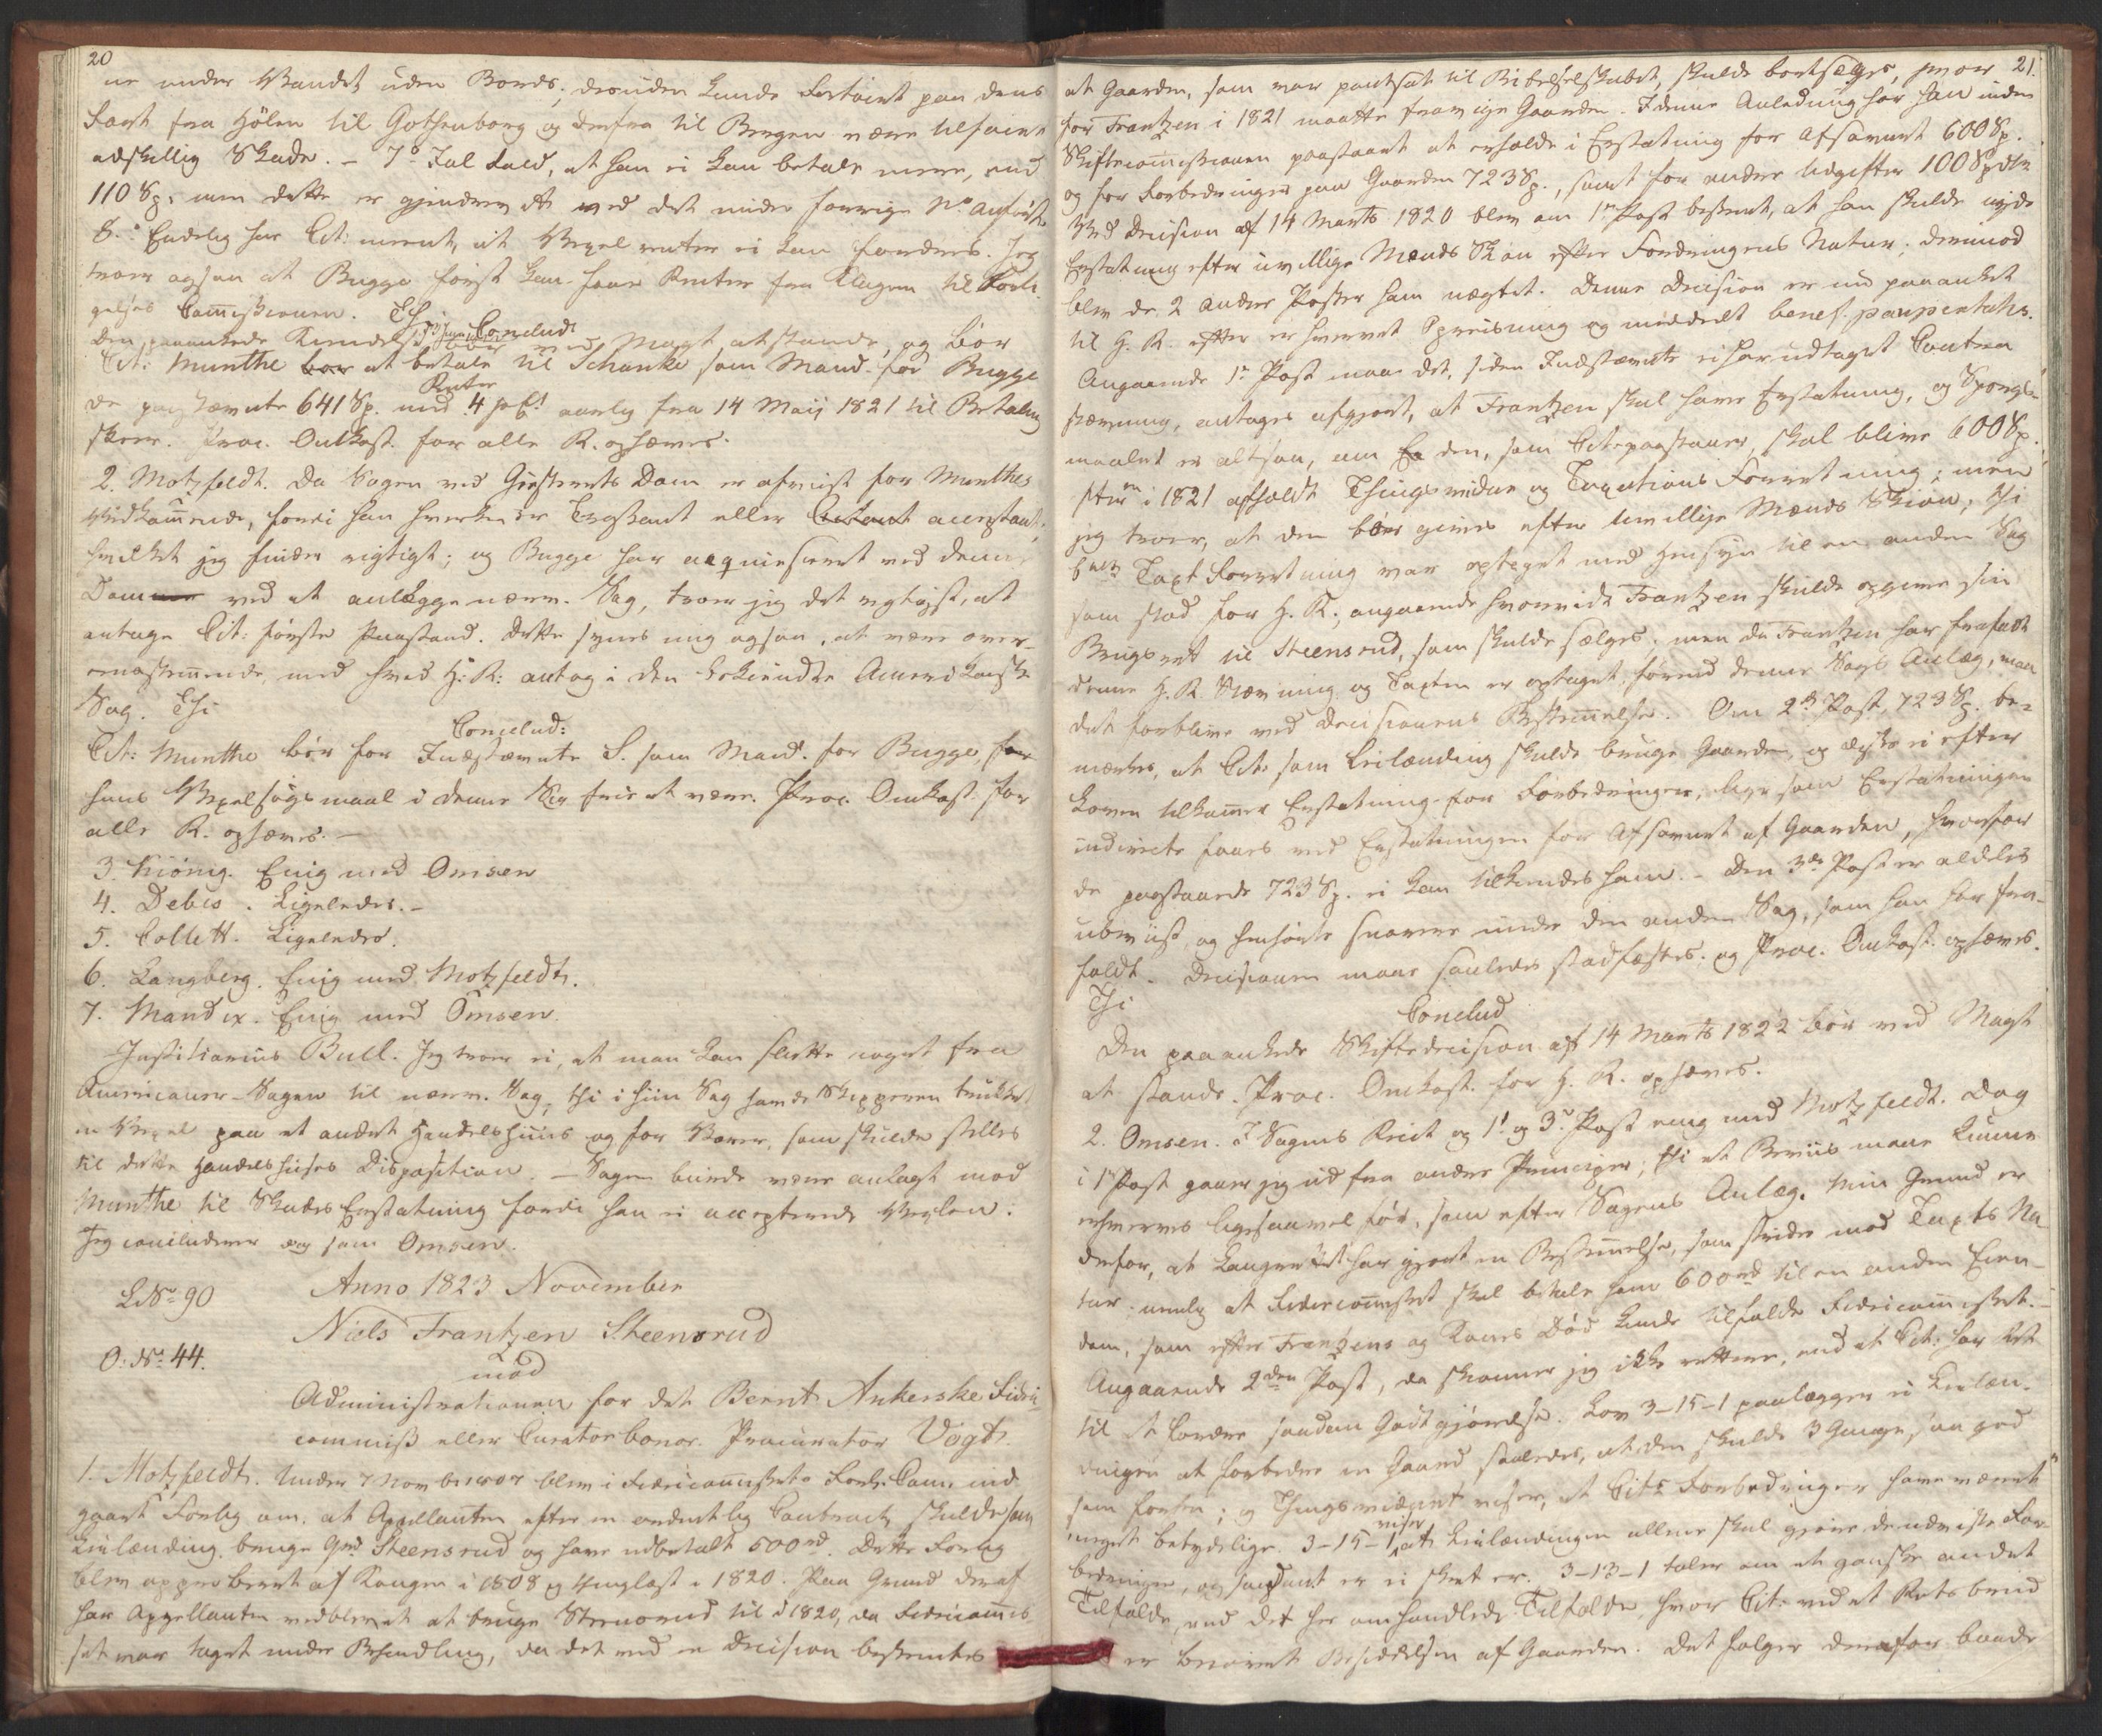 20
ne under Vandet uden Bords; desuden kunde Fartøiet paa dens
Fart fra Hölen til Gothenborg og derfra til Bergen være tilføiet
adskillig Skade. – 7° Jul. Lald, at han ei kan betale mere, end
110 Sp. men dette er gjendrevet ved det under forrige No anførte
8.° Endelig har Cit: meent, at Vexel renter ei kan fordres. Jeg
troer ogsaa at Bugge først kan faae Renter fra Klagen til Forli-
gelses Commissionen. Thi
Conclud:
Den paaankede Kiendelse bør ved Magt at stande, og bör
Cit: Munthe bör at betale til Schanke som Mand for Bugge
de paastævnte 641 Sp. med 4 pCt Renter aarlig fra 14 Maij 1821 til Betaling
skeer. Proc. Omkost. for alle R. ophæves.
2. Motzfeldt. Da Sagen ved Giesterets Dom er afviist for Munthes
Vedkommende, fordi han hverken er Trassent eller Acceptant,
hvilket jeg finder rigtigt; og Bugge har acquiesceret ved denne
Dom ved at anlægge nærv. Sag, troer jeg det rigtigst, at
antage Cit: første Paastand. Dette synes mig ogsaa, at være over-
eenstemmende, med hvad H: R: antog i den bekiendte Amerikanske
Sag. Thi
Conclud:
Cit: Munthe bör for Indstævnte S. som Mand for Bugge, for
hans Vexelsøgsmaal i denne Sag frie at være. Proc. Omkost. for
alle R. ophæves. –
3. Kiönig. Enig med Omsen
4. Debes. Ligeledes. –
5. Collett. Ligeledes.
6. Langberg. Enig med Motzfeldt.
7. Mandix. Enig med Omsen.
Justitiarius Bull. Jeg troer ei, at man kan slutte noget fra
Americaner-Sagen til nærv. Sag, thi i hiin Sag havde Skipperen trukket
en Vexel paa et andet Handelshuus og for Varer, som skulde stilles
til dette Handelshuses Disposition. – Sagen burde være anlagt mod
Munthe til Skades Erstatning fordi han ei accepterede Vexlen.
Jeg concluderer dog som Omsen.
L. No 90 Anno 1823 November
Niels Frantzen Steensrud
O. No 44. mod
Administrationen for det Bernt Ankerske Fidei
commiss eller Curator bonor. Procurator Vogt.
1. Motzfeldt. Under 7 Novbr 1807 blev i Fideicommissets Forl. Com. ind
gaaet Forlig om, at Appellanten efter en oprettet Contract, skulde som
Leilænding bruge Gaard Steensrud og have udbetalt 500 rd. Dette Forlig
blev approberet af Kongen i 1808 og thinglæst i 1820. Paa Grund deraf
har Appellanten vedblevet at bruge Steensrud til i 1820, da Fideicommis-
set var taget under Behandling, da det ved en Decision bestemtes
21.
at Gaarden, som var pantsat til Rigets selskabet, skulde bortsælges, hvor
for Frantzen i 1821 maatte fravige Gaarden. I denne Anledning har han inden
Skiftecommissionen paastaaet at erholde i Erstatning for Afsavnet 600 Sp.
og for Forbedringer paa Gaarden 723 Sp., samt for andre Udgifter 100 Spdlr
Ved Decision af 14 Marts 1820 blev om 1ste Post bestemt, at han skulde nyde
Erstatning efter uvillige Mænds Skiøn efter Fordringens Natur; derimod
blev de 2 andre Poster ham nægtet. Denne Decision er nu paaanket
til H. R. efter erhvervet Opreisning og meddeelt benef. paupertatis.
Angaaende 1ste Post maae det, siden Indstævnte ei har udtaget Contra
stævning, antages afgjort, at Frantzen skal have Erstatning, og Spørgs-
maalet er altsaa, om den, som Cit. paastaaer, skal blive 600 Sp.
efter en i 1821 afholdt Thingsvidne og Taxations Forretning; men
jeg troer, at den bör gives efter Uvillige Mænds Skiön; thi
bem. Taxt Forretning var optaget med Hensyn til en anden Sag
som stod for H. R., angaaende hvorvidt Frantzen skulde opgive sin
Brugsret til Steensrud, som skulde sælges; men da Frantzen har frafaldt
denne H. R. Stævning og Taxten er optaget, førend denne Sags Anlæg, maa
det forblive ved Decisionens Bestemmelse. Om 2den Post, 723 Sp. be-
mærkes, at Cit. som Leilænding skulde bruge Gaarden, og dertil ei efter
Loven tilkommer Erstatning for Forbedringer, ligesom Erstatningen
indirecte faaes ved Erstatningen for Afsavnet af Gaarden, hvorfor
de paastaaede 723 Sp. ei kan tilkiendes ham. – Den 3die Post er aldeles
ubeviist, og henhørte snarere under den anden Sag, som han har fra-
faldt. Decisionen maae saaledes stadfæstes, og Proc. Omkost. ophæves.
Thi
Conclud
Den paaankede Skiftedecision af 14 Marts 1822 bör ved Magt
at stande. Proc. Omkost. for H. R. ophæves.
2. Omsen. I Sagens Reit og 1ste og 3die Post enig med Motzfeldt. Dog
i 1ste Post gaaer jeg ud fra andre Principer; thi et Beviis maae kunne
erhverves ligesaavel før, som efter Sagens Anlæg. Min Grund er
derfor, at Laugrettet har gjort en Bestemmelse, som strider mod Taxts Na-
tur, nemlig at Fideicommisset skal betale ham 600 rd til en anden Eien-
dom, som efter Frantzens og Kones Död kunde tilfalde Fideicommisset. –
Angaaende 2den Post, da skiønner jeg ikke rettere, end at Cit. har Ret
til at fordre saadan Godtgjørelse. Lov 3–15–1 paalægger ei Leilæn-
dingen at forbedre en Gaard saaledes, at den skulde 3 Gange saa god
som forhen; og Thingsvidnet viser, at Cits Forbedringer have været
meget betydelige. 3–15–1 viser, at Leilændingen allene skal gjøre de nødvendigste For-
bedringer, og saadant er ei skeet her. 3–13–1 taler om et ganske andet
Tilfælde, end det her omhandlede Tilfælde, hvor Cit. ved et Retsbrud
er berøvet Besiddelsen af Gaarden. Det følger derfor baade